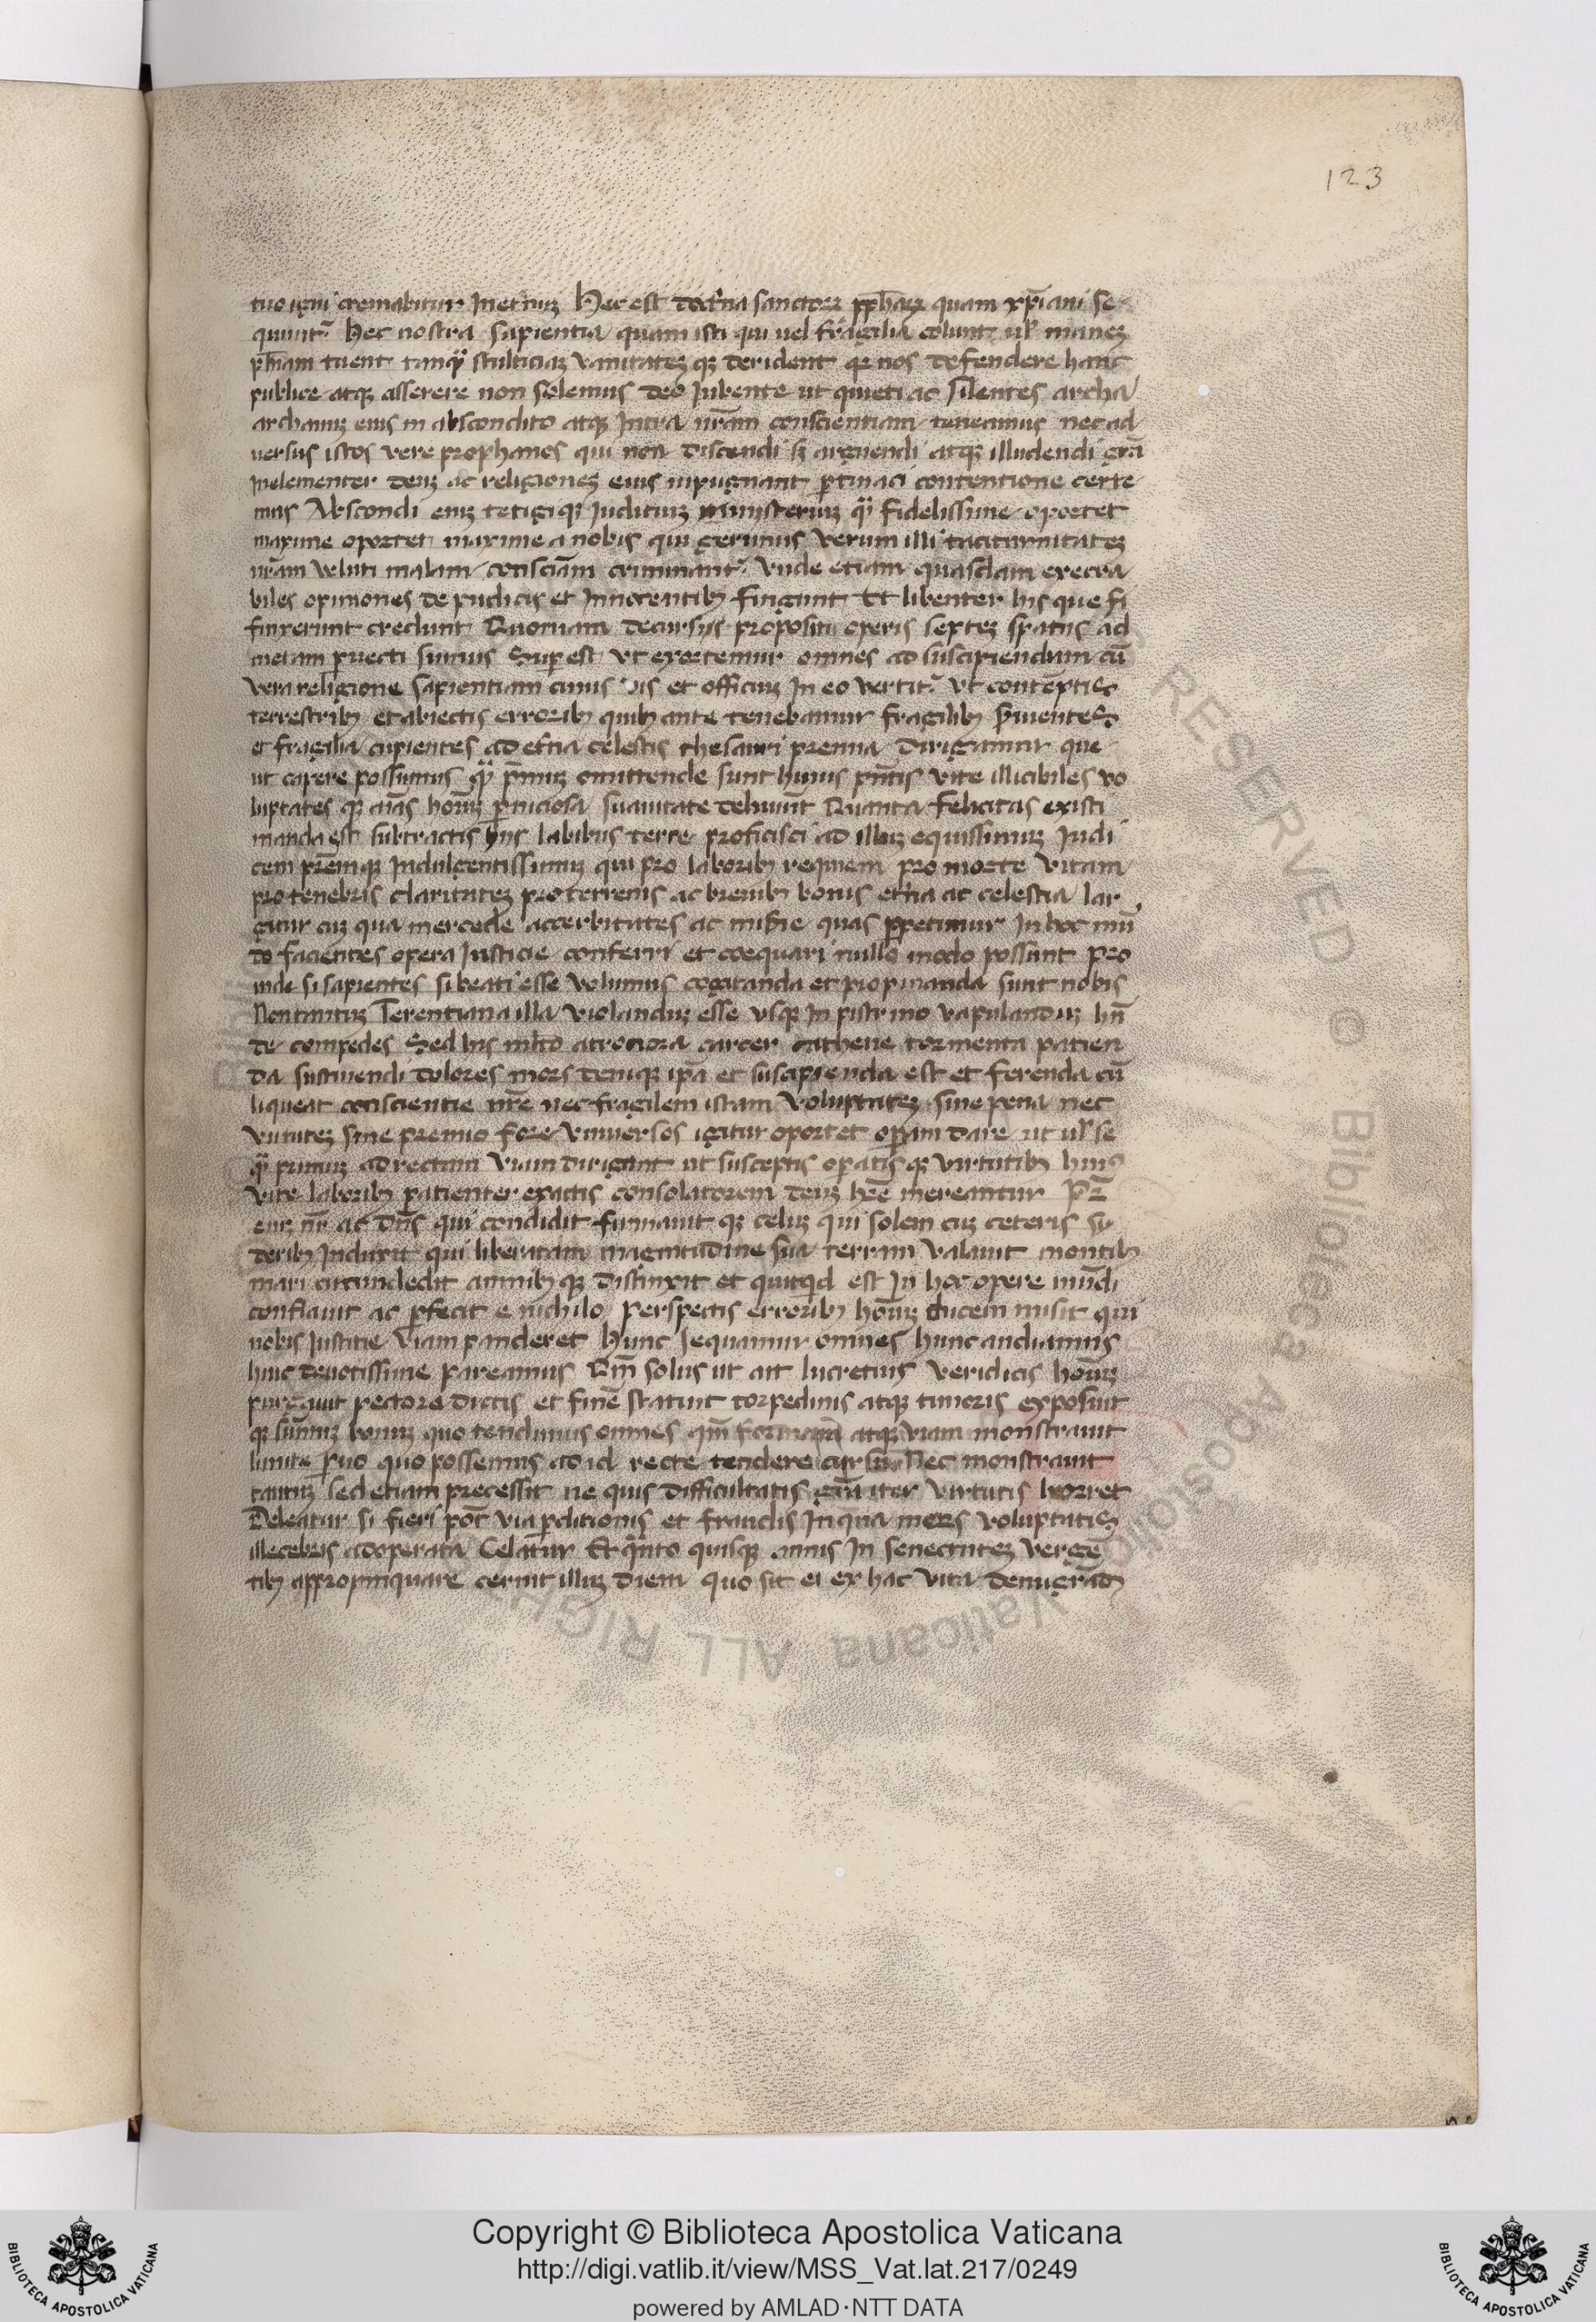 123
tuo igni cremabitur Inet͛nuꝫ Hec est doct͛na sanctoꝝ ꝓph̄aꝝ quam xp̄iani se
quunt᷑ Hec nostra sapientia quam isti qui uel fragilia colunt ul̓ maneꝫ
ph̄iam tuent᷑ tanqͣ stulticiaꝫ vanitateꝫ qꝫ derident qꝫ nos defendere hanc
publice atqꝫ asserere non solemus deo Iubente ut quieti ac silentes archa
archanuꝫ eius in abscondito atqꝫ Intra nr̄am conscientiam teneamus nec ad
uersus istos vere prophanos qui non discendi sꝫ arguendi atqꝫ illudendi gr̄a
Inclementer deuꝫ ac religioneꝫ eius inpugnant ꝑtinaci contentione certe
mus Abscondi eniꝫ tetigiqꝫ Iuditiuꝫ ministeriuꝫ qͣ fidelissime oportet
maxime oportet maxime a nobis qui gerimus verum illi taciturnitateꝫ
nr̄am veluti malam consciām criminant᷑ vnde etiam quasdam execra
biles opiniones de pudicis et Innocentibꝫ fingunt Et libenter his que fi
finxerunt credunt Quoniam decursis propositi operis septeꝫ spatiis ad
metam ꝓuecti sumus Suꝑest vt exortemur omnes ad suscipiendam cū
vera religione sapientiam cuius vis et officiuꝫ In eo vertit᷑ vt contēptis
terrestribꝫ et abiectis erroribꝫ quibꝫ ante tenebamur fragilibꝫ s͛uientes
et fragilia cupientes ad et͛na celestis thesauri premia dirigamur que
ut capere possumus qͣ p̄muꝫ omittende sunt huius pn̄tis vite illicibiles vo
luptates qꝫ aīas hoīuꝫ ꝑniciosa suauitate deliniūt Quanta felicitas existi
manda est subtractis hijs labibus terre proficisci ad illuꝫ equissimuꝫ Iudi
cem pr̄emqꝫ Indulgentissimuꝫ qui pro laboribꝫ requiem pro morte vitam
pro tenebris claritateꝫ pro terrenis ac breuibꝫ bonis et͛na ac celestia lar
gitur cuꝫ qua mercede accerbitates ac mis͛ie quas ꝑpetimur In hoc mū
do facientes opera Iusticie conferri et coequari nullo modo possunt Pro
inde si sapientes si beati esse volumus cogitanda et propinanda sunt nobis
Nontantuꝫ Terentiana illa violanduꝫ esse vsqꝫ in pistrino vapulanduꝫ hn̄
de compedes Sed his ml̓to atrociora carcer cathene tormenta patien
da sustinendi dolores mors deniqꝫ ip̄a et suscipienda est et ferenda cū
liqueat conscientie nr̄e nec fragilem istam voluptateꝫ sine pena nec
virtuteꝫ sine premio fore vniuersos igitur oportet oꝑam dare ut ul̓ se
qͣ primuꝫ ad rectam viam dirigant ut susceptis oꝑatisqꝫ virtutibꝫ huiꝰ
vite laboribꝫ patienter exactis consolatorem deuꝫ h̄re mereantur Pr̄
eniꝫ nr̄ ac dn̄s qui condidit firmauit qꝫ celuꝫ qui solem cuꝫ ceteris sy
deribꝫ Induxit qui liberatam magnitudine sua terram valauit montibꝫ
mari circundedit amnibꝫ qꝫ distinxit et quitqͥd est In hoc opere mūdi
conflauit ac ꝑfecit e nichilo Perspectis erroribꝫ hoīuꝫ ducem misit qui
nobis Iustitie viam panderet Hunc sequamur omnes hunc audiamus
huic deuotissime pareamus Qm̄ solus ut ait lucretius veridicis hoīuꝫ
purgauit pectora dictis et finē statuit torpedinis atqꝫ timoris exposuit
qꝫ sūmuꝫ bonuꝫ quo tendimus omnes atqꝫ viam monstrauit
limite ꝑuo quo possemus ad id recte tendere cursu Nec monstrauit
tantuꝫ sed etiam precessit ne quis difficultatis gr̄a iter virtutis horret
Deleatur si fieri pōt via ꝑditionis et fraudis In qua mors voluptatis
illecebris adoperata Celatur Et qͣnto quisqꝫ annis In senectuteꝫ vergē
tibꝫ appropinquare cernit illuꝫ diem quo sit ei ex hac vita demigrādꝫ
Copyright © Biblioteca Apostolica Vaticana
http://digi.vatlib.it/view/MSS_Vat.lat.217/0249
powered by AMLAD·NTT DATA
BIBLIOTECA APOSTOLICA VATICANA
BIBLIOTECA APOSTOLICA VATICANA